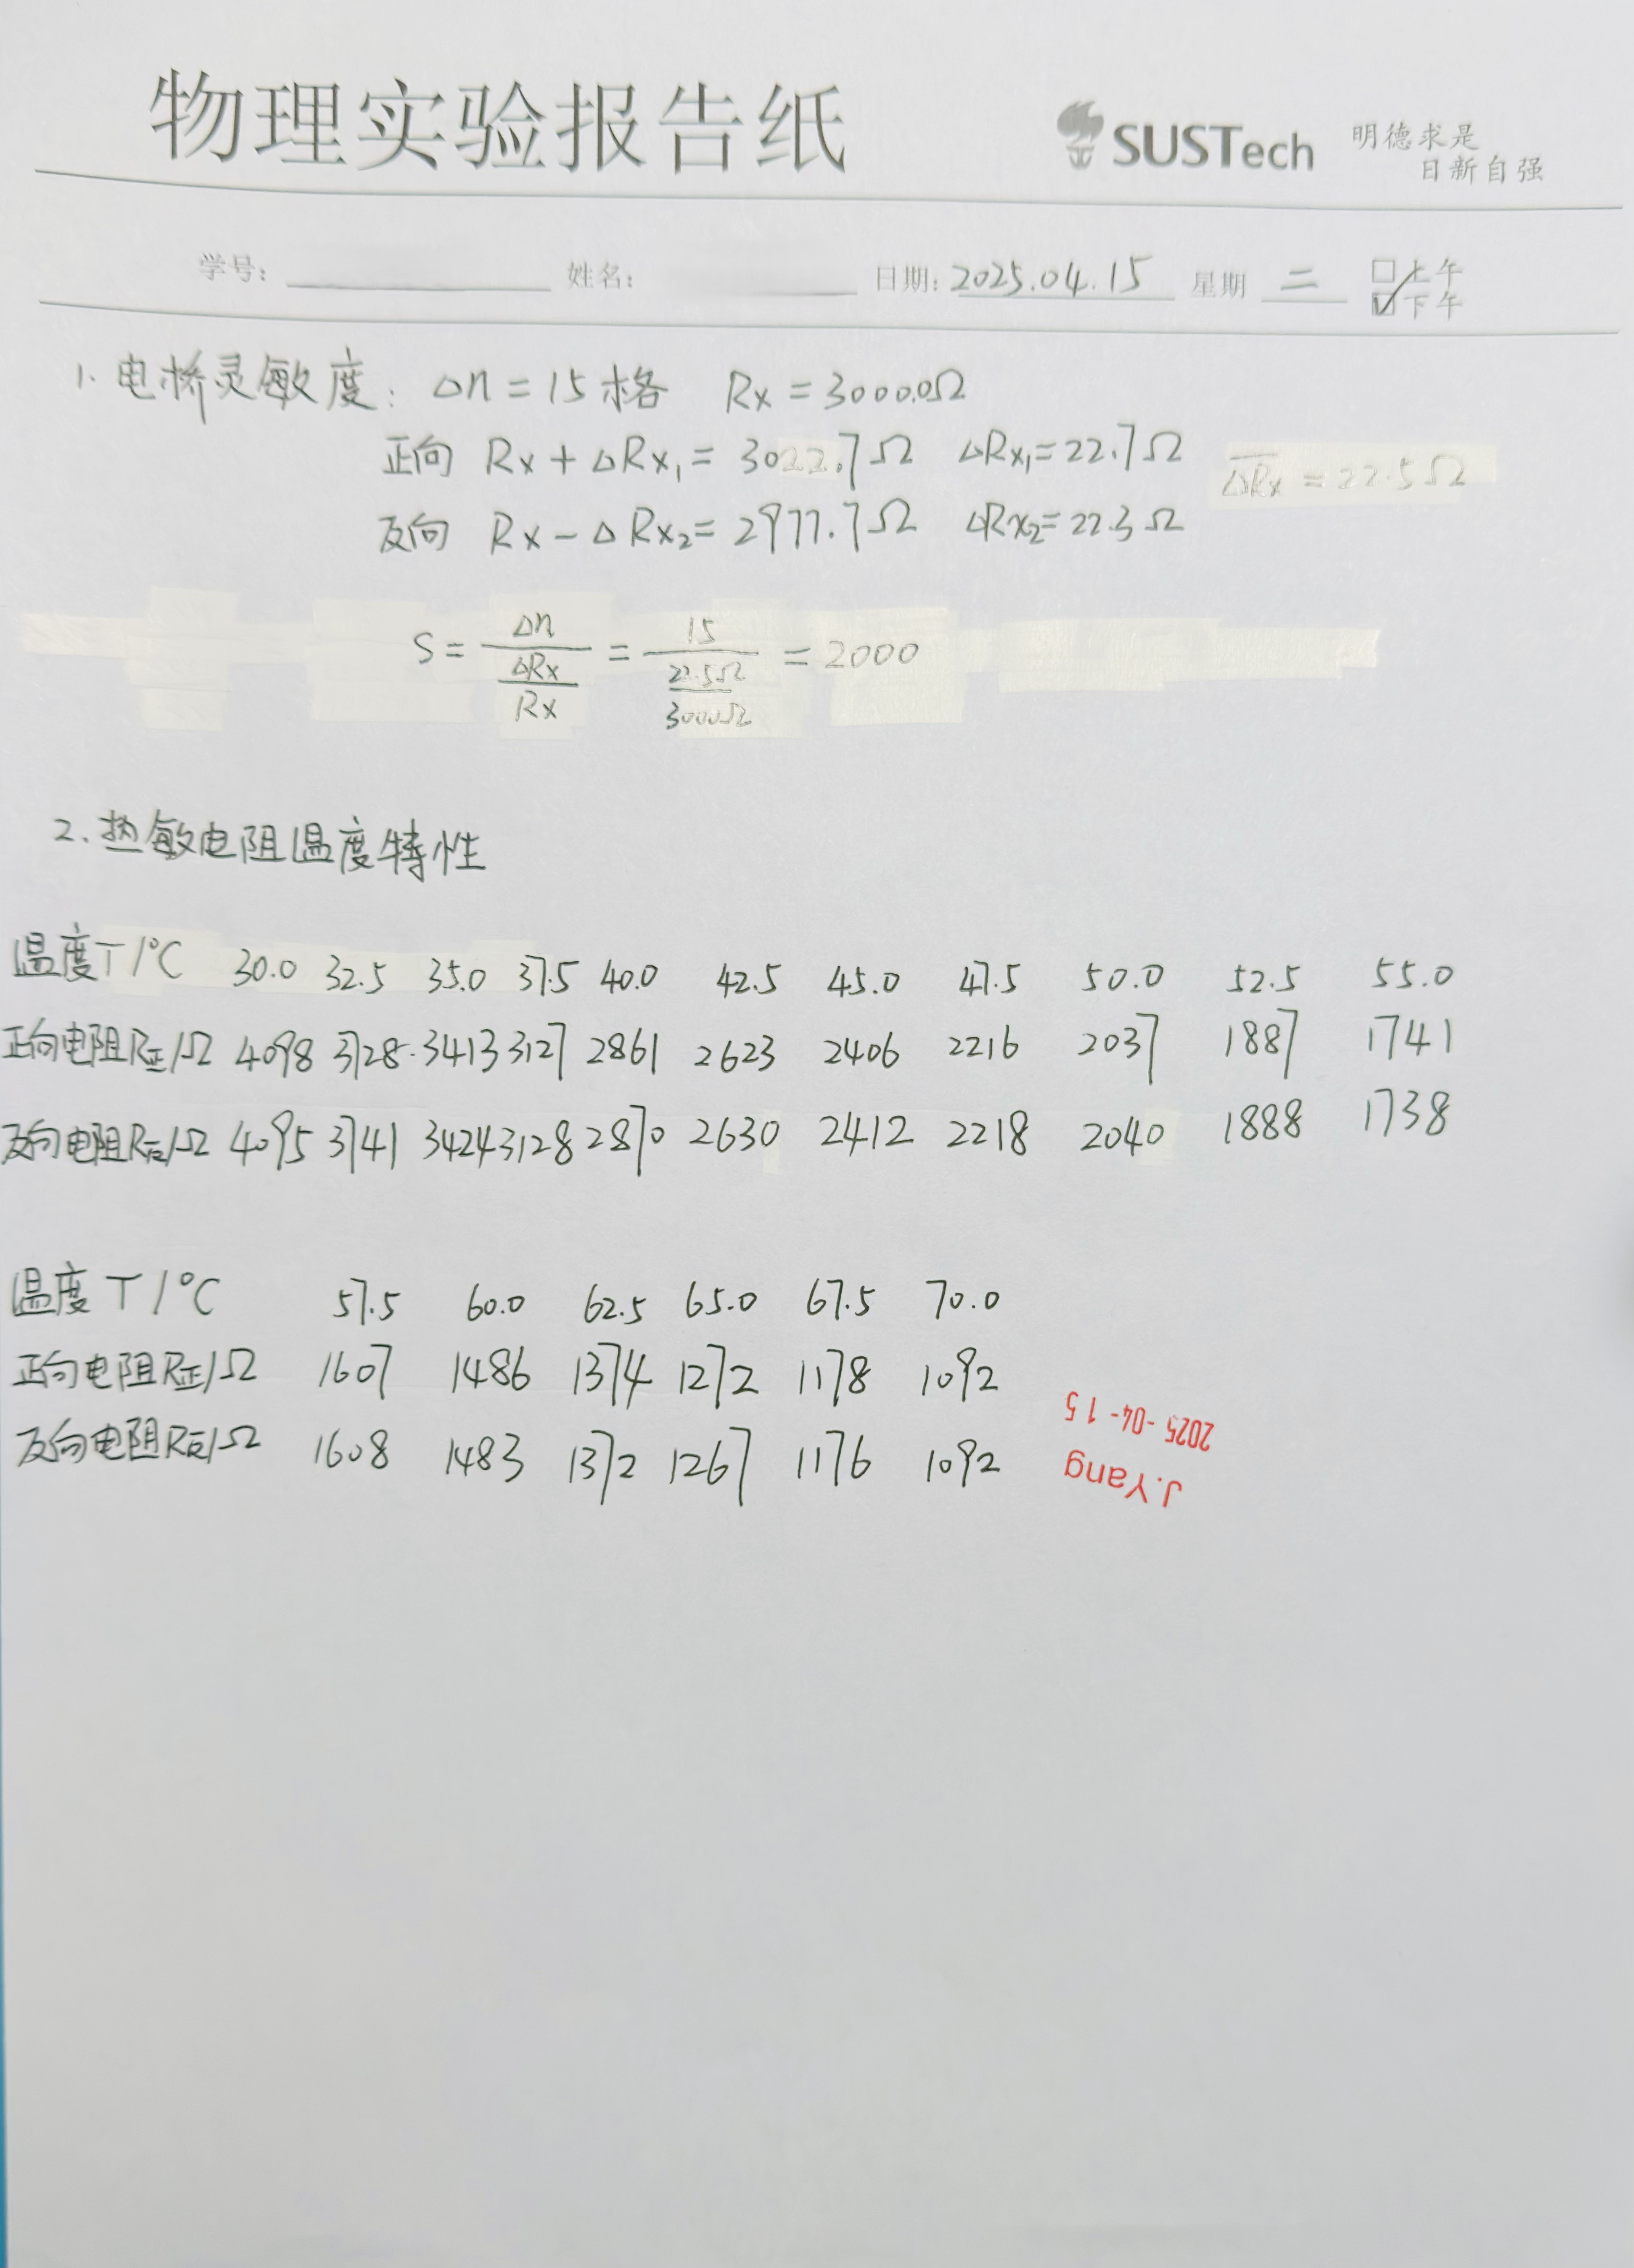 物理实验报告纸
SUSTech 明德求是
日新自强
学号: 姓名: 日期: 2025.04.15 星期 二 □上午
☑下午
1. 电桥灵敏度: Δn = 15格 Rx = 3000.0Ω
正向 Rx + ΔRx₁ = 3022.7Ω ΔRx₁ = 22.7Ω
反向 Rx - ΔRx₂ = 2977.7Ω ΔRx₂ = 22.3Ω
Δ̅R̅x̅ = 22.5Ω
S = Δn / (ΔRx / Rx) = 15 / (22.5Ω / 3000Ω) = 2000
2. 热敏电阻温度特性
温度T/°C 30.0 32.5 35.0 37.5 40.0 42.5 45.0 47.5 50.0 52.5 55.0
正向电阻R正/Ω 4098 3728 3413 3127 2861 2623 2406 2216 2037 1887 1741
反向电阻R反/Ω 4095 3741 3424 3128 2870 2630 2412 2218 2040 1888 1738
温度T/°C 57.5 60.0 62.5 65.0 67.5 70.0
正向电阻R正/Ω 1607 1486 1374 1272 1178 1092
反向电阻R反/Ω 1608 1483 1372 1267 1176 1092
J.Yang
2025-04-15